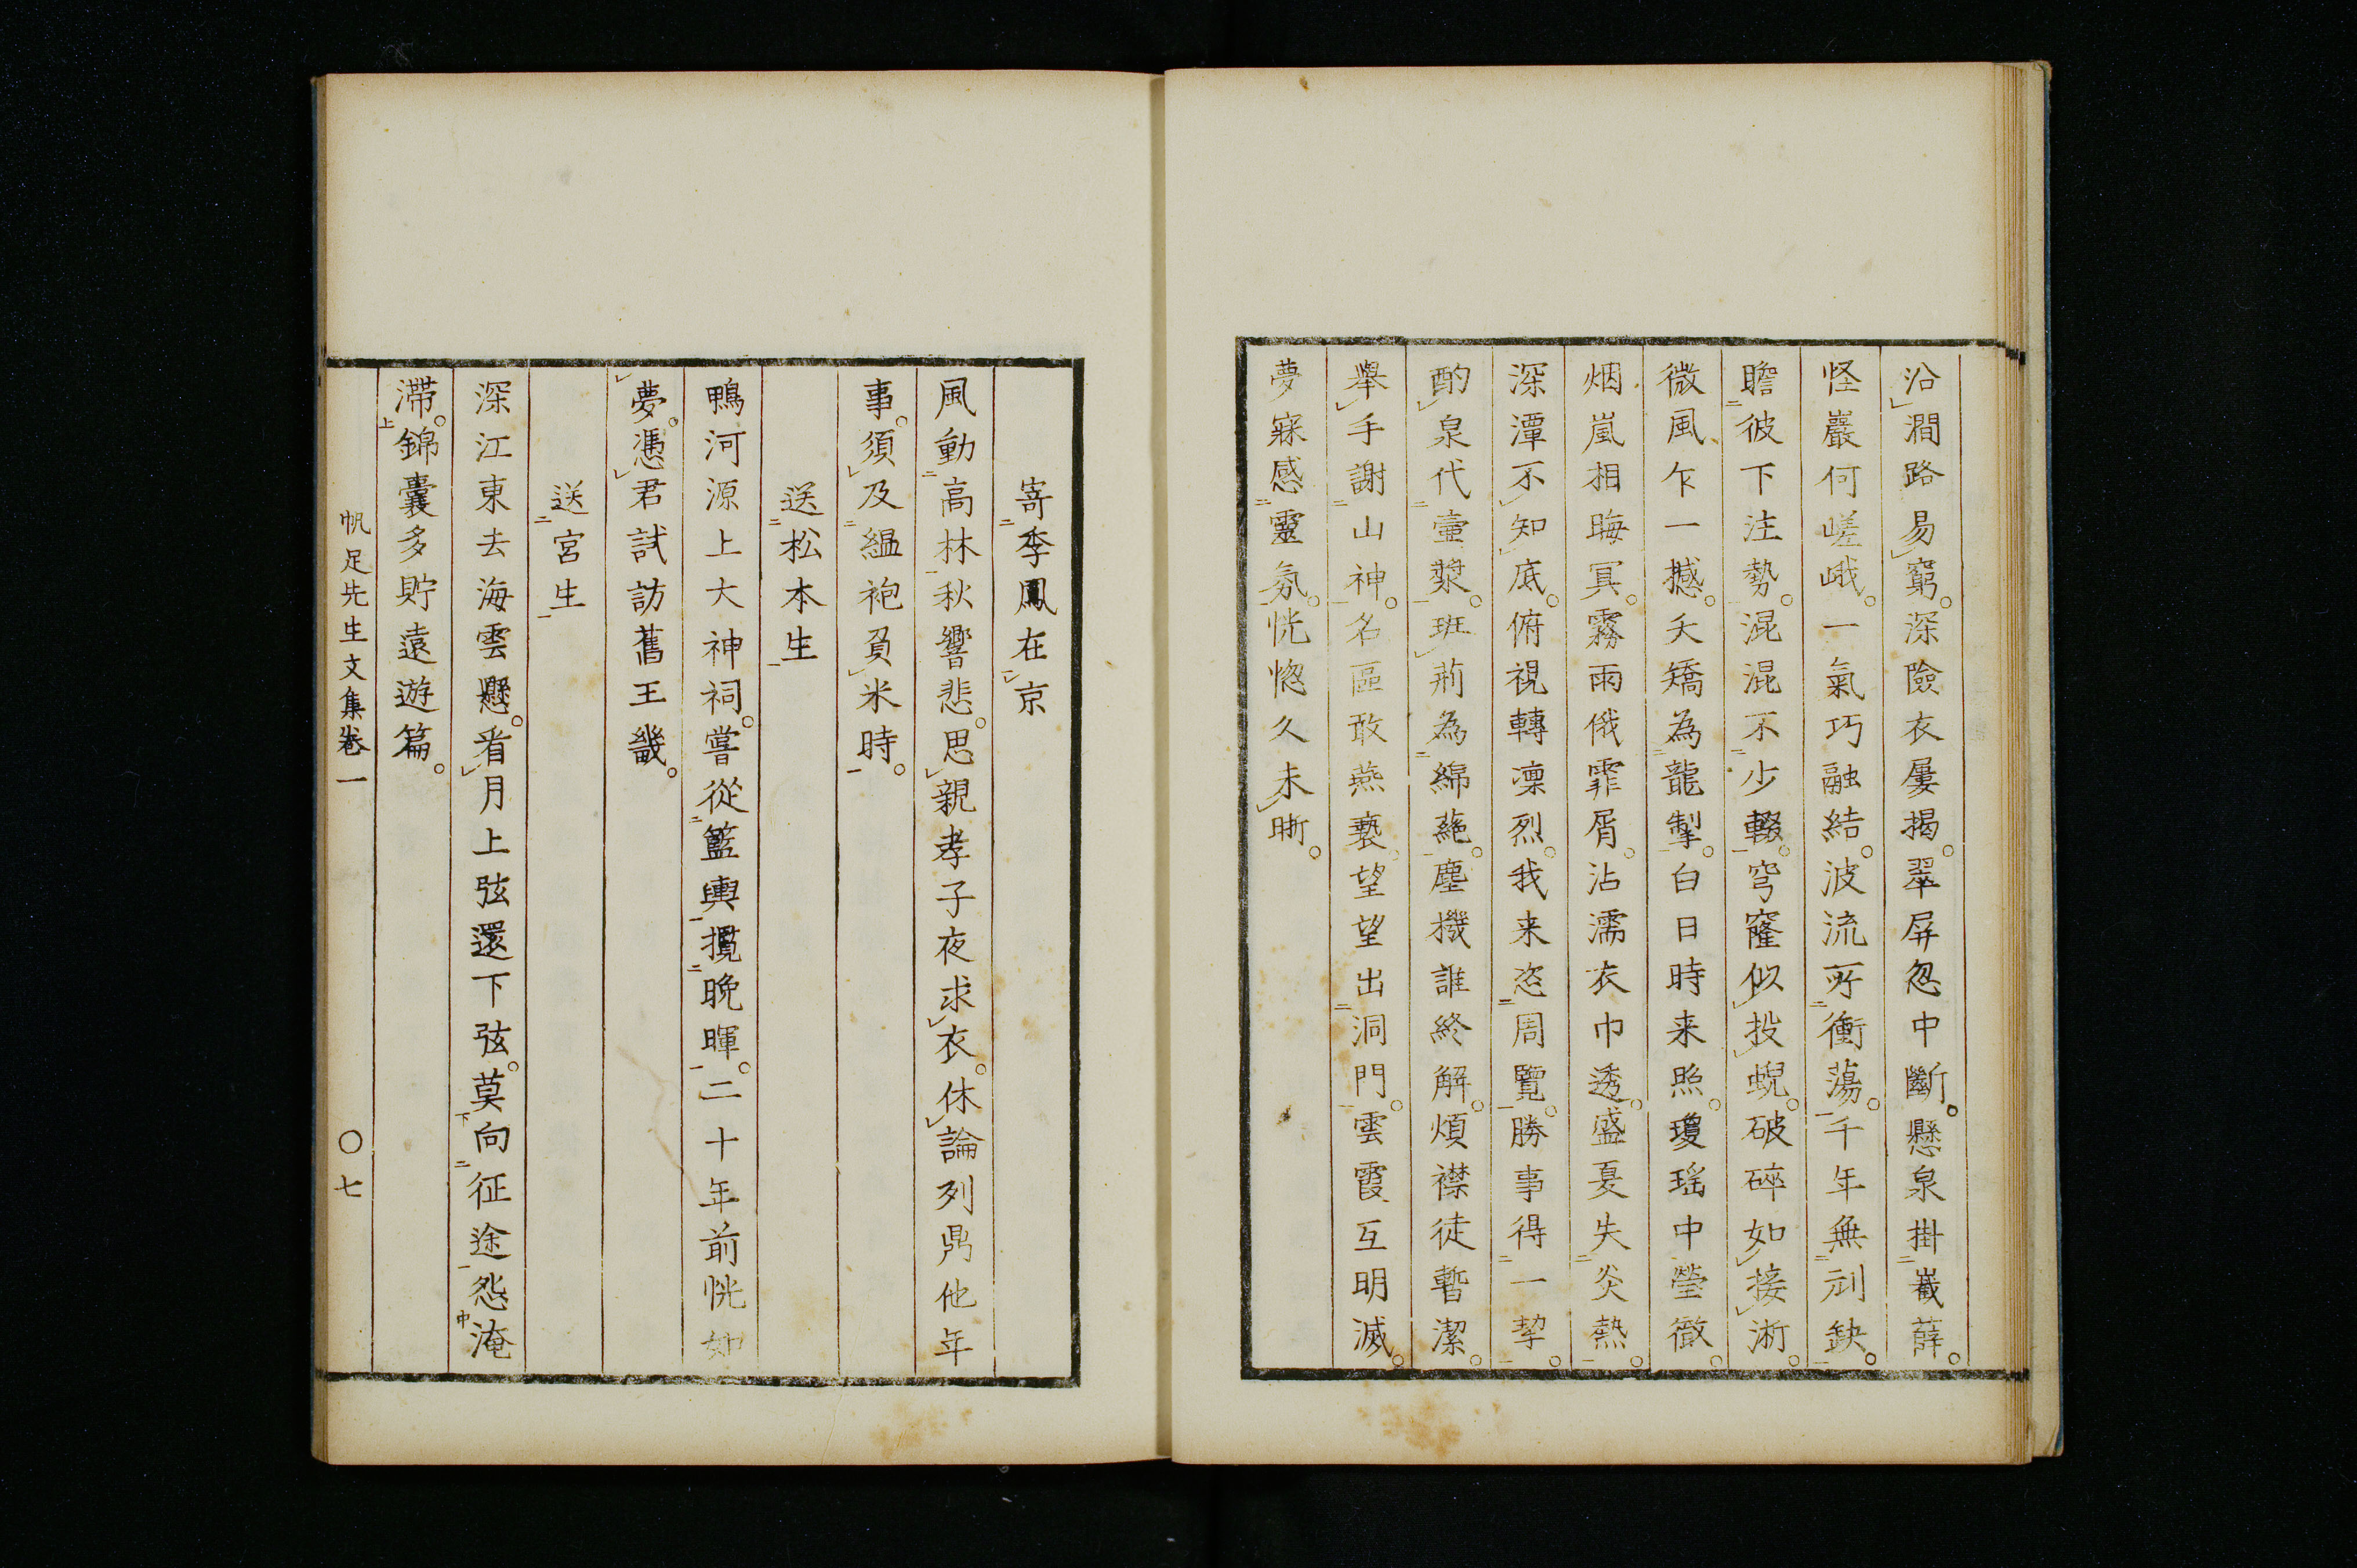 沿澗路易窮。深險衣屢揭。翠屏忽中斷。懸泉掛巀薛。
怪巖何嵯峨。一氣巧融結。波流所衝蕩。千年無刓缺。
瞻彼下注勢。混混不少輟。穹窿似投蜺。破碎如接淅。
微風乍一撼。夭矯為龍掣。白日時来照。瓊瑤中瑩徹。
烟嵐相晦冥。霧雨俄霏屑。沾濡衣巾透。盛夏失炎熱。
深潭不知底。俯視轉凜烈。我来恣周覽。勝事得一挈。
酌泉代壷漿。班荊為綿蕝。塵機誰終解。煩襟徒暫潔。
舉手謝山神。名區敢燕褻。望望出洞門。雲霞互明滅。
夢寐感靈氛。恍惚久未晰。
寄季鳳在京
風動高林秋響悲。思親孝子夜求衣。休論列鼎他年
事。須及縕袍負米時。
送松本生
鴨河源上大神祠。嘗從籃輿攬晚暉。二十年前恍如
夢。憑君試訪舊王畿。
送宮生
深江東去海雲懸。看月上弦還下弦。莫向征途怨淹
滯。錦囊多貯遠遊篇。
帆足先生文集卷一
〇七